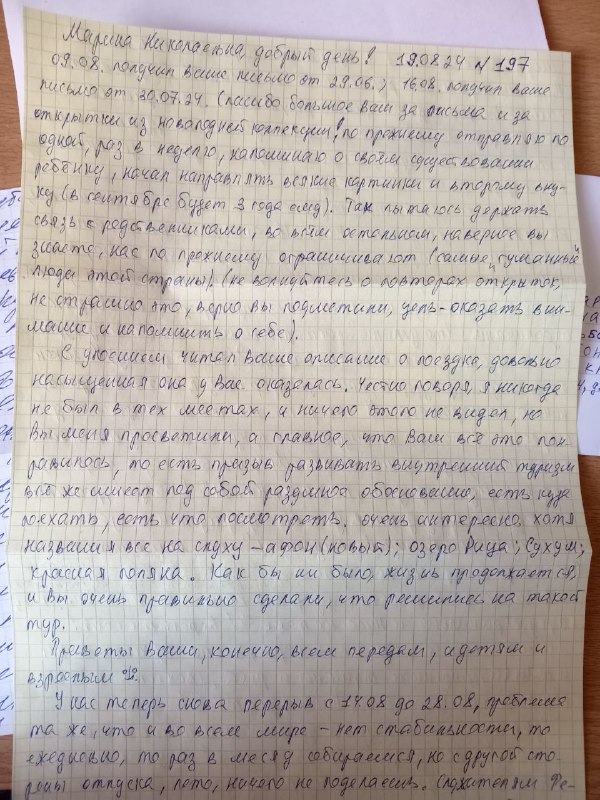 Марина Николаевна, добрый день! 19.08.24 № 197
09.08. получил ваше письмо от 29.06.; 16.08. получил ваше
письмо от 30.07.24. Спасибо большое Вам за письма и за
открытки из новогодней коллекции! по прежнему отправляю по
одной, раз в неделю, напоминаю о своём существовании
ребёнку, начал направлять всякие картинки и второму вну-
ку (в сентябре будет 3 года ему). Так пытаюсь держать
связь с родственниками, во всём остальном, наверное вы
знаете, нас по прежнему ограничивают (самые "гуманные"
люди этой страны) (не волнуйтесь о повторах открыток,
не страшно это, верно вы подметили, цель-оказать вни-
мание и напомнить о себе).
С упоением читал Ваше описание о поездке, довольно
насыщенная она у Вас оказалась. Честно говоря, я никогда
не был в тех местах, и ничего этого не видел, но
Вы меня просветили, а главное, что Вам всё это пон-
равилось, то есть призыв развивать внутренний туризм
всё же имеет под собой разумное обоснование, есть куда
поехать, есть что посмотреть. очень интересно, хотя
названия все на слуху - афон (новый); озеро Рица; Сухум;
красная поляна. Как бы ни было, жизнь продолжается,
и Вы очень правильно сделали, что решились на такой
тур.
Приветы Ваши, конечно, всем передам, и детям и
взрослым
У нас теперь снова перерыв с 14.08 до 28.08, проблема
та же, что и во всем мире - нет стабильности, то
ежедневно, то раз в месяц собираемся, но с другой сто-
роны отпуска, лето, ничего не поделаешь. Служителям Фе-